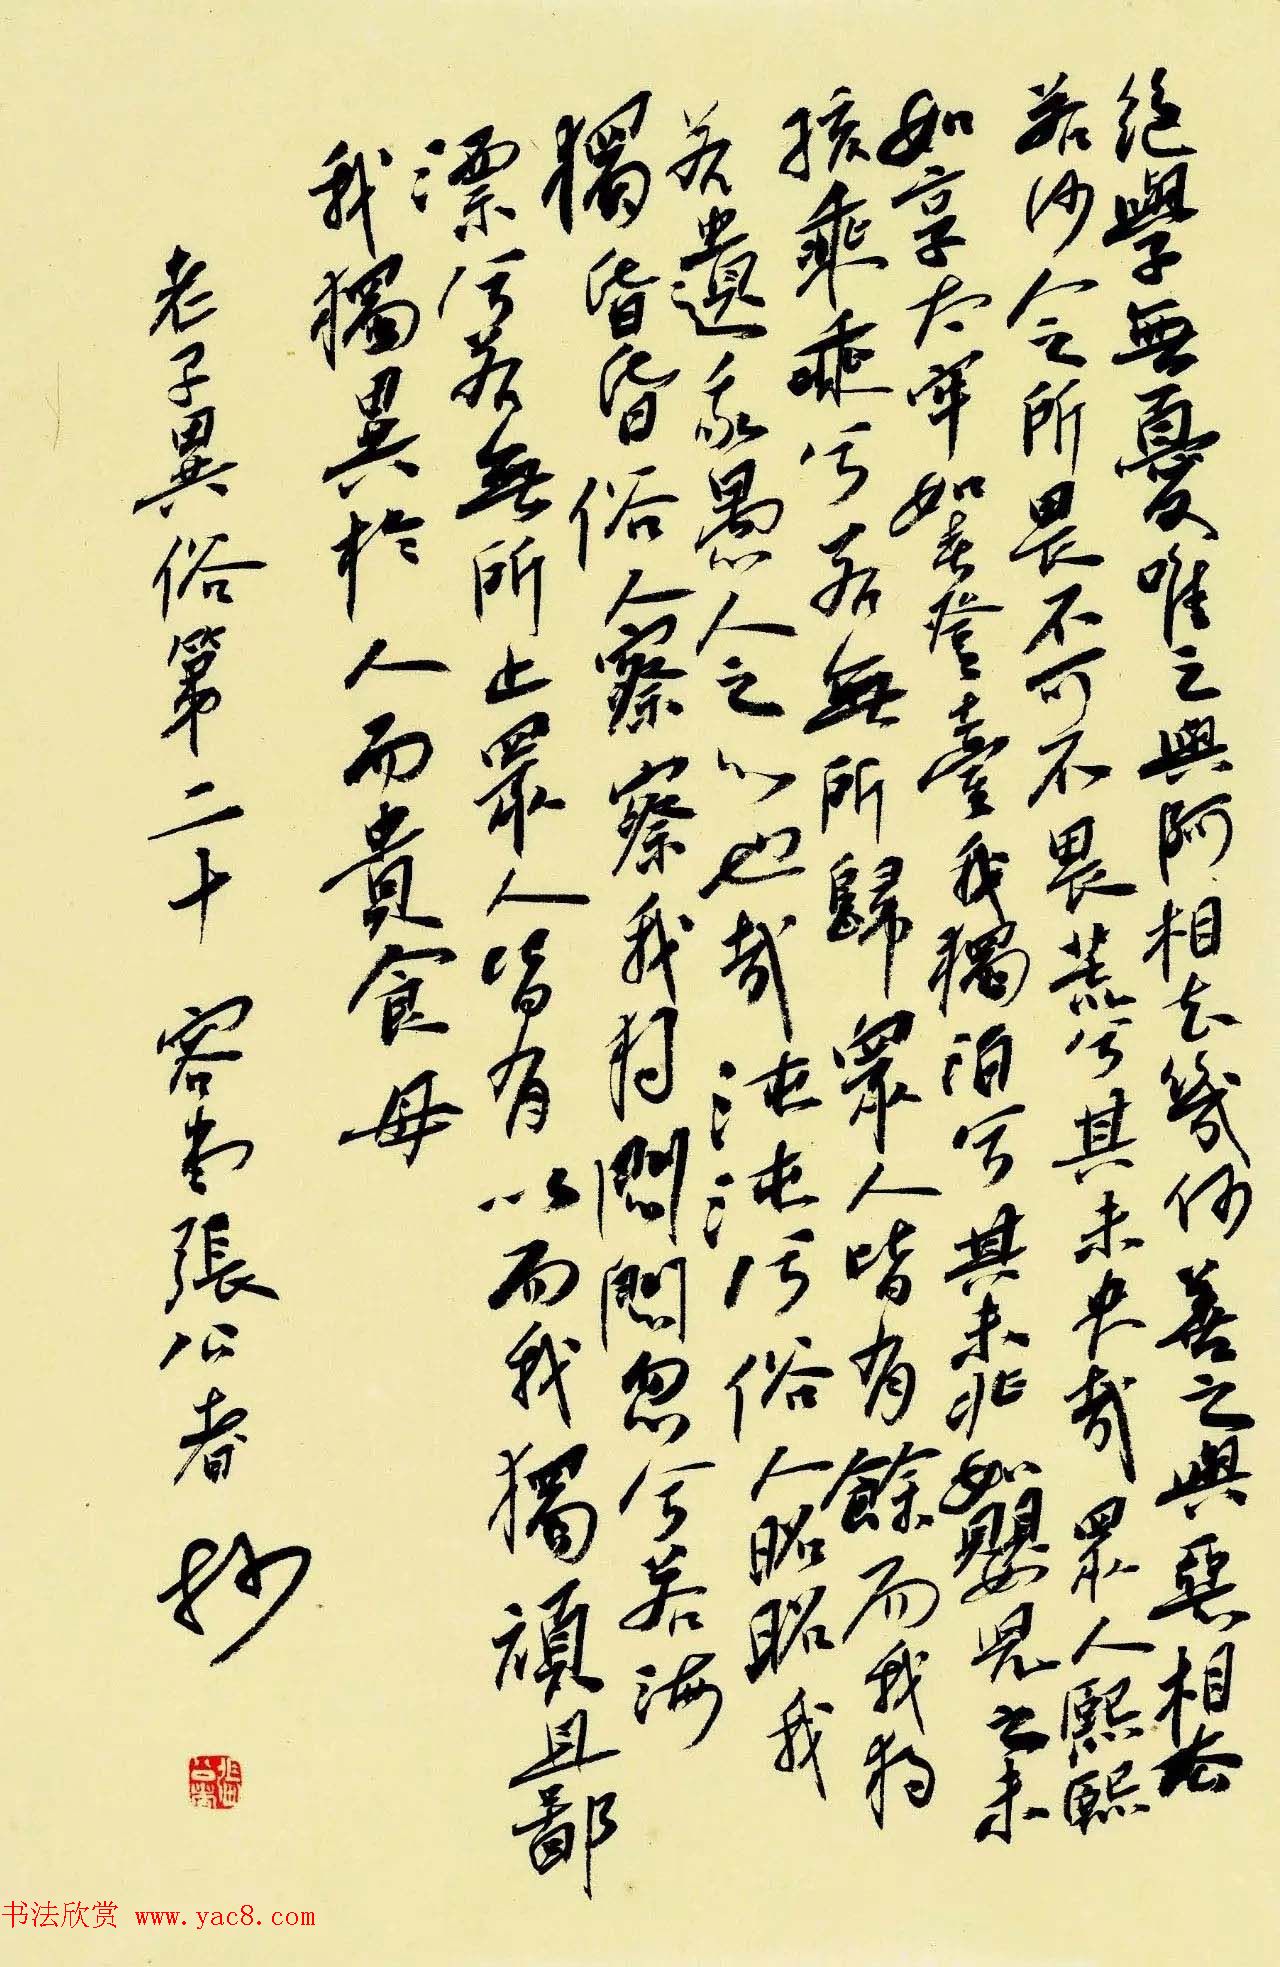 絕學無憂唯之與阿相去幾何善之與惡相去
若何人之所畏不可不畏荒兮其未央哉眾人熙熙
如享太牢如春登臺我獨泊兮其未兆如嬰兒之未
孩乘乘兮若無所歸眾人皆有餘而我獨
若遺我愚人之心也哉沌沌兮俗人昭昭我
獨昏昏俗人察察我獨悶悶忽兮若海
漂兮若無所止眾人皆有以而我獨頑且鄙
我獨異於人而貴食母
老子異俗第二十 容堂張公者抄
书法欣赏 www.yac8.com